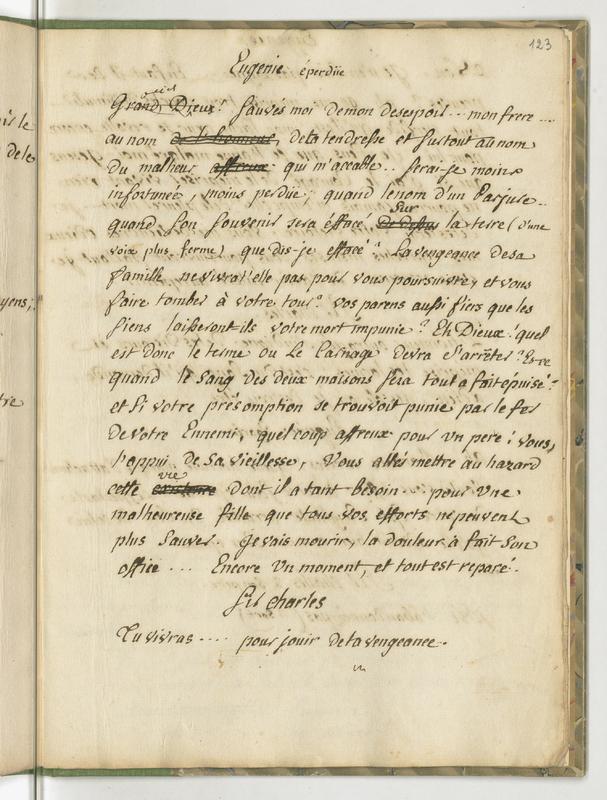 123
Eugenie éperdüe
Grands Dieux! Sauvés moi de mon desespoir.. mon frere...
au nom de l'honneur, de la tendresse et surtout au nom
du malheur affreux qui m'accable.. serai-je moins
infortunée, moins perdue; quand le nom d'un Parjure..
quand son souvenir sera éffacé de dessus sur la terre (d'une
voix plus ferme), que dis-je effacé? La vengeance de sa
famille ne vivra t'elle pas pour vous poursuivre, et vous
faire tomber à votre tour? vos parens aussi fiers que les
siens laisseront ils votre mort impunie? Eh Dieux! quel
est donc le terme ou le Carnage devra s'arrêter? Est-ce
quand le sang des deux maisons sera tout a fait épuisé?
et si votre présomption se trouvoit punie par le fer
de votre Ennemi, quel coup affreux pour un pere! vous,
l'appui de sa vieillesse, vous allés mettre au hazard
cette existence vie dont il a tant besoin.. pour une
malheureuse fille que tous vos efforts ne peuvent
plus sauver. Je vais mourir, la douleur à fait son
office... Encore un moment, et tout est reparé.
Sir Charles
Tu vivras.... pour jouir de ta vengeance.
is le
de le
yens;
tre